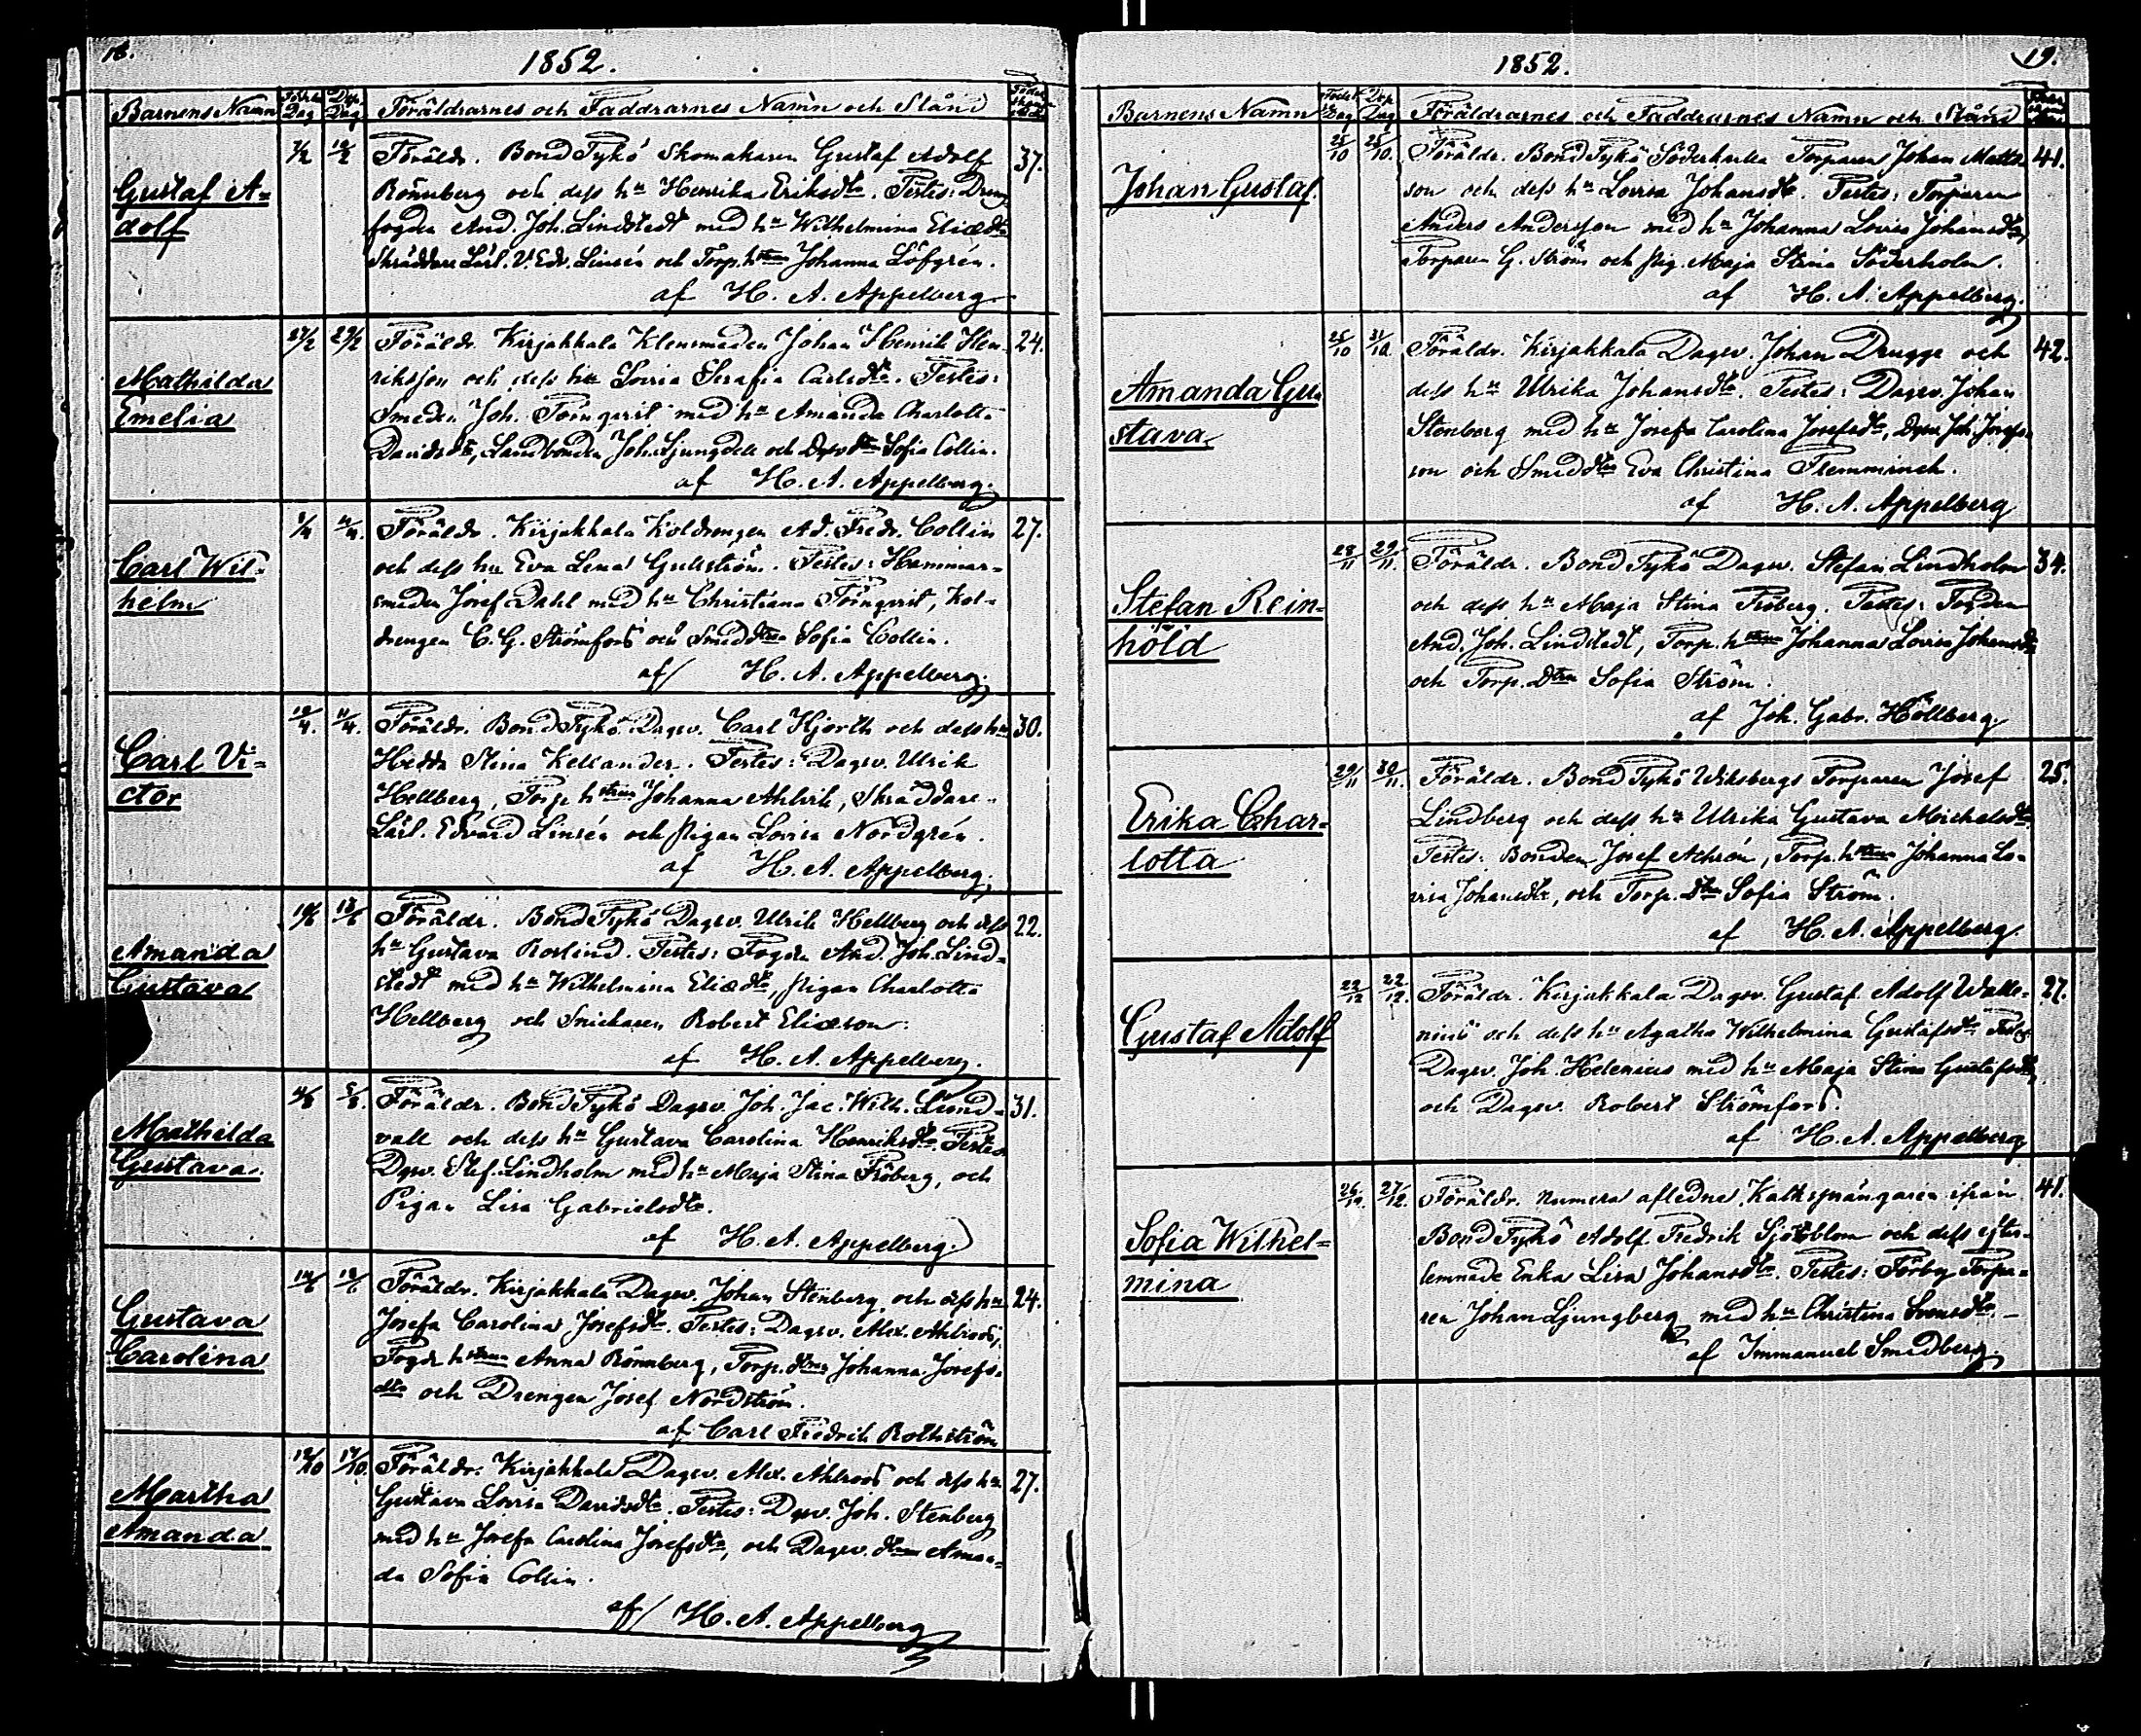 18.
1852.
Barnens Namn Födelse Dag Döp. Dag Föräldrarnes och Faddrarnes Namn och Stånd
Gustaf A=
dolf
7/2 10/2 Föräldr. Bond Tykö Skomakaren Gustaf Adolf 37.
Rönnberg och dess hu Henrika Eriksdtr. Testes: Dreng
fogden And. Joh. Lindstedt med hu Wilhelmina Eliædtr
Skräddare Lärl. V. Edv. Linsén och Torp. hstrun Johanna Löfgrén.
af H. A. Appelberg
Mathilda
Emelia
27/2 29/2 Föräldr. Kirjakkala Klensmeden Johan Henrik Hen- 24.
riksson och dess hu Lovisa Serafia Carlsdtr. Testes:
Smeden Joh. Törnqvist med hu Amanda Charlotta
Davidsdtr, Landbonden Joh. Ljungdell och Dgsv dtr Sofia Collin.
af H. A. Appelberg.
Carl Wil-
helm
1/4 11/4 Föräldr. Kirjakkala Koldrengen Ad. Fredr. Collin 27.
och dess hu Eva Lena Gullström. Testes: Hammar-
smeden Josef Dahl med hu Christiana Törnqvist, Kol-
drengen C. G. Strömfors och Smeddtren Sofia Collin.
af H. A. Appelberg.
Carl Vi=
ctor
10/4. 11/4. Föräldr. Bond Tykö Dagsv. Carl Hjorth och dess hu 30.
Hedda Stina Kellander. Testes: Dagsv. Ulrik
Hellberg, Torp. hstrun Johanna Ahlvik, Skräddare-
Lärl. Edvard Linsén och Pigan Lovisa Nordgrén.
af H. A. Appelberg.
Amanda
Gustava
Föräldr. Bond Tykö Dagsv. Ulrik Hellberg och dess 22.
hu Gustava Roslind. Testes: Fogden And. Joh. Lind=
stedt med hu Wilhelmina Eliædtr, Pigan Charlotta
Hellberg och Snickaren Robert Eliæson.
af H. A. Appelberg.
Mathilda
Gustava.
Föräldr. Bond Tykö Dagsv. Joh. Jac. Wilh. Lund- 31.
vall och dess hu Gustava Carolina Henriksdtr. Testes
Dgsv. Stef. Lindholm med hu Maja Stina Fröberg, och
Pigan Lisa Gabrielsdtr.
af H. A. Appelberg.
Gustava
Carolina
Föräldr. Kirjakkala Dagsv. Johan Stenberg och dess hu 24.
Josefa Carolina Josefsdtr. Testes: Dagsv. Alex. Ahlroos,
Fogde hstrun Anna Rönnberg, Torp. dtren Johanna Josefs-
dtr och Drengen Josef Nordström.
af Carl Fredrik Rothström
Martha
Amanda
12/10 17/10. Föräldr. Kirjakkala Dagsv. Alex. Ahlroos och dess hu 27.
Gustava Lovisa Davidsdtr. Testes: Dgsv. Joh. Stenberg
med hu Josefa Carolina Josefsdtr, och Dagsv. dtren Aman=
da Sofia Collin.
af H. A. Appelberg
19.
1852.
Barnens Namn Födelse Dag Döp Dag Föräldrarnes och Faddrarnes Namn och Stånd
Johan Gustaf
25/10 25/10. Föräldr. Bond Tykö Söderkulla Torparen Johan Matts- 41.
son och dess hu Lovisa Johansdtr. Testes: Torparen
Anders Andersson med hu Johanna Lovisa Johansdtr,
Torparen G. Ström och Pig. Maja Stina Söderholm.
af H. A. Appelberg.
Amanda Gu-
stava.
25/10 31/10. Föräldr. Kirjakkala Dagsv. Johan Drugge och 42.
dess hu Ulrika Johansdtr. Testes: Dagsv. Johan
Stenberg med hu Josefa Carolina Josefsdtr, Dgsv. Joh. Josefs-
son och Smeddtren Eva Christina Flemminch.
af H. A. Appelberg
Stefan Rein-
hold
28/11 29/11. Föräldr. Bond Tykö Dagsv. Stefan Lindholm 34.
och dess hu Maja Stina Fröberg. Testes: Fogden
And. Joh. Lindstedt, Torp. hstrun Johanna Lovisa Johansdtr
och Torp. dtren Sofia Ström.
af Joh. Gabr. Höllberg.
Erika Char-
lotta
29/11 30/11. Föräldr. Bond Tykö Wiksbergs Torparen Josef 25.
Lindberg och dess hu Ulrika Gustava Michelsdtr.
Testes: Bonden Josef Achrén, Torp. hstrun Johanna Lo-
visa Johansdtr, och Torp. dtr Sofia Ström.
af H. A. Appelberg.
Gustaf Adolf
22/12 22/12. Föräldr. Kirjakkala Dagsv. Gustaf Adolf Walle- 27.
nius och dess hu Agatha Wilhelmina Gustafsdtr Testes
Dagsv. Joh. Helenius med hu Maja Stina Gustafsdtr,
och Dagsv. Robert Strömfors.
af H. A. Appelberg
Sofia Wilhel=
mina
26/12. 27/12. Föräldr. numera afledne Kalksprängaren ifrån 41.
Bond Tykö Adolf Fredrik Sjöblom och dess efter-
lemnade Enka Lisa Johansdtr. Testes: Förby Torpa=
ren Johan Ljungberg med hu Christina Svensdtr. -
af Immanuel Smedberg.